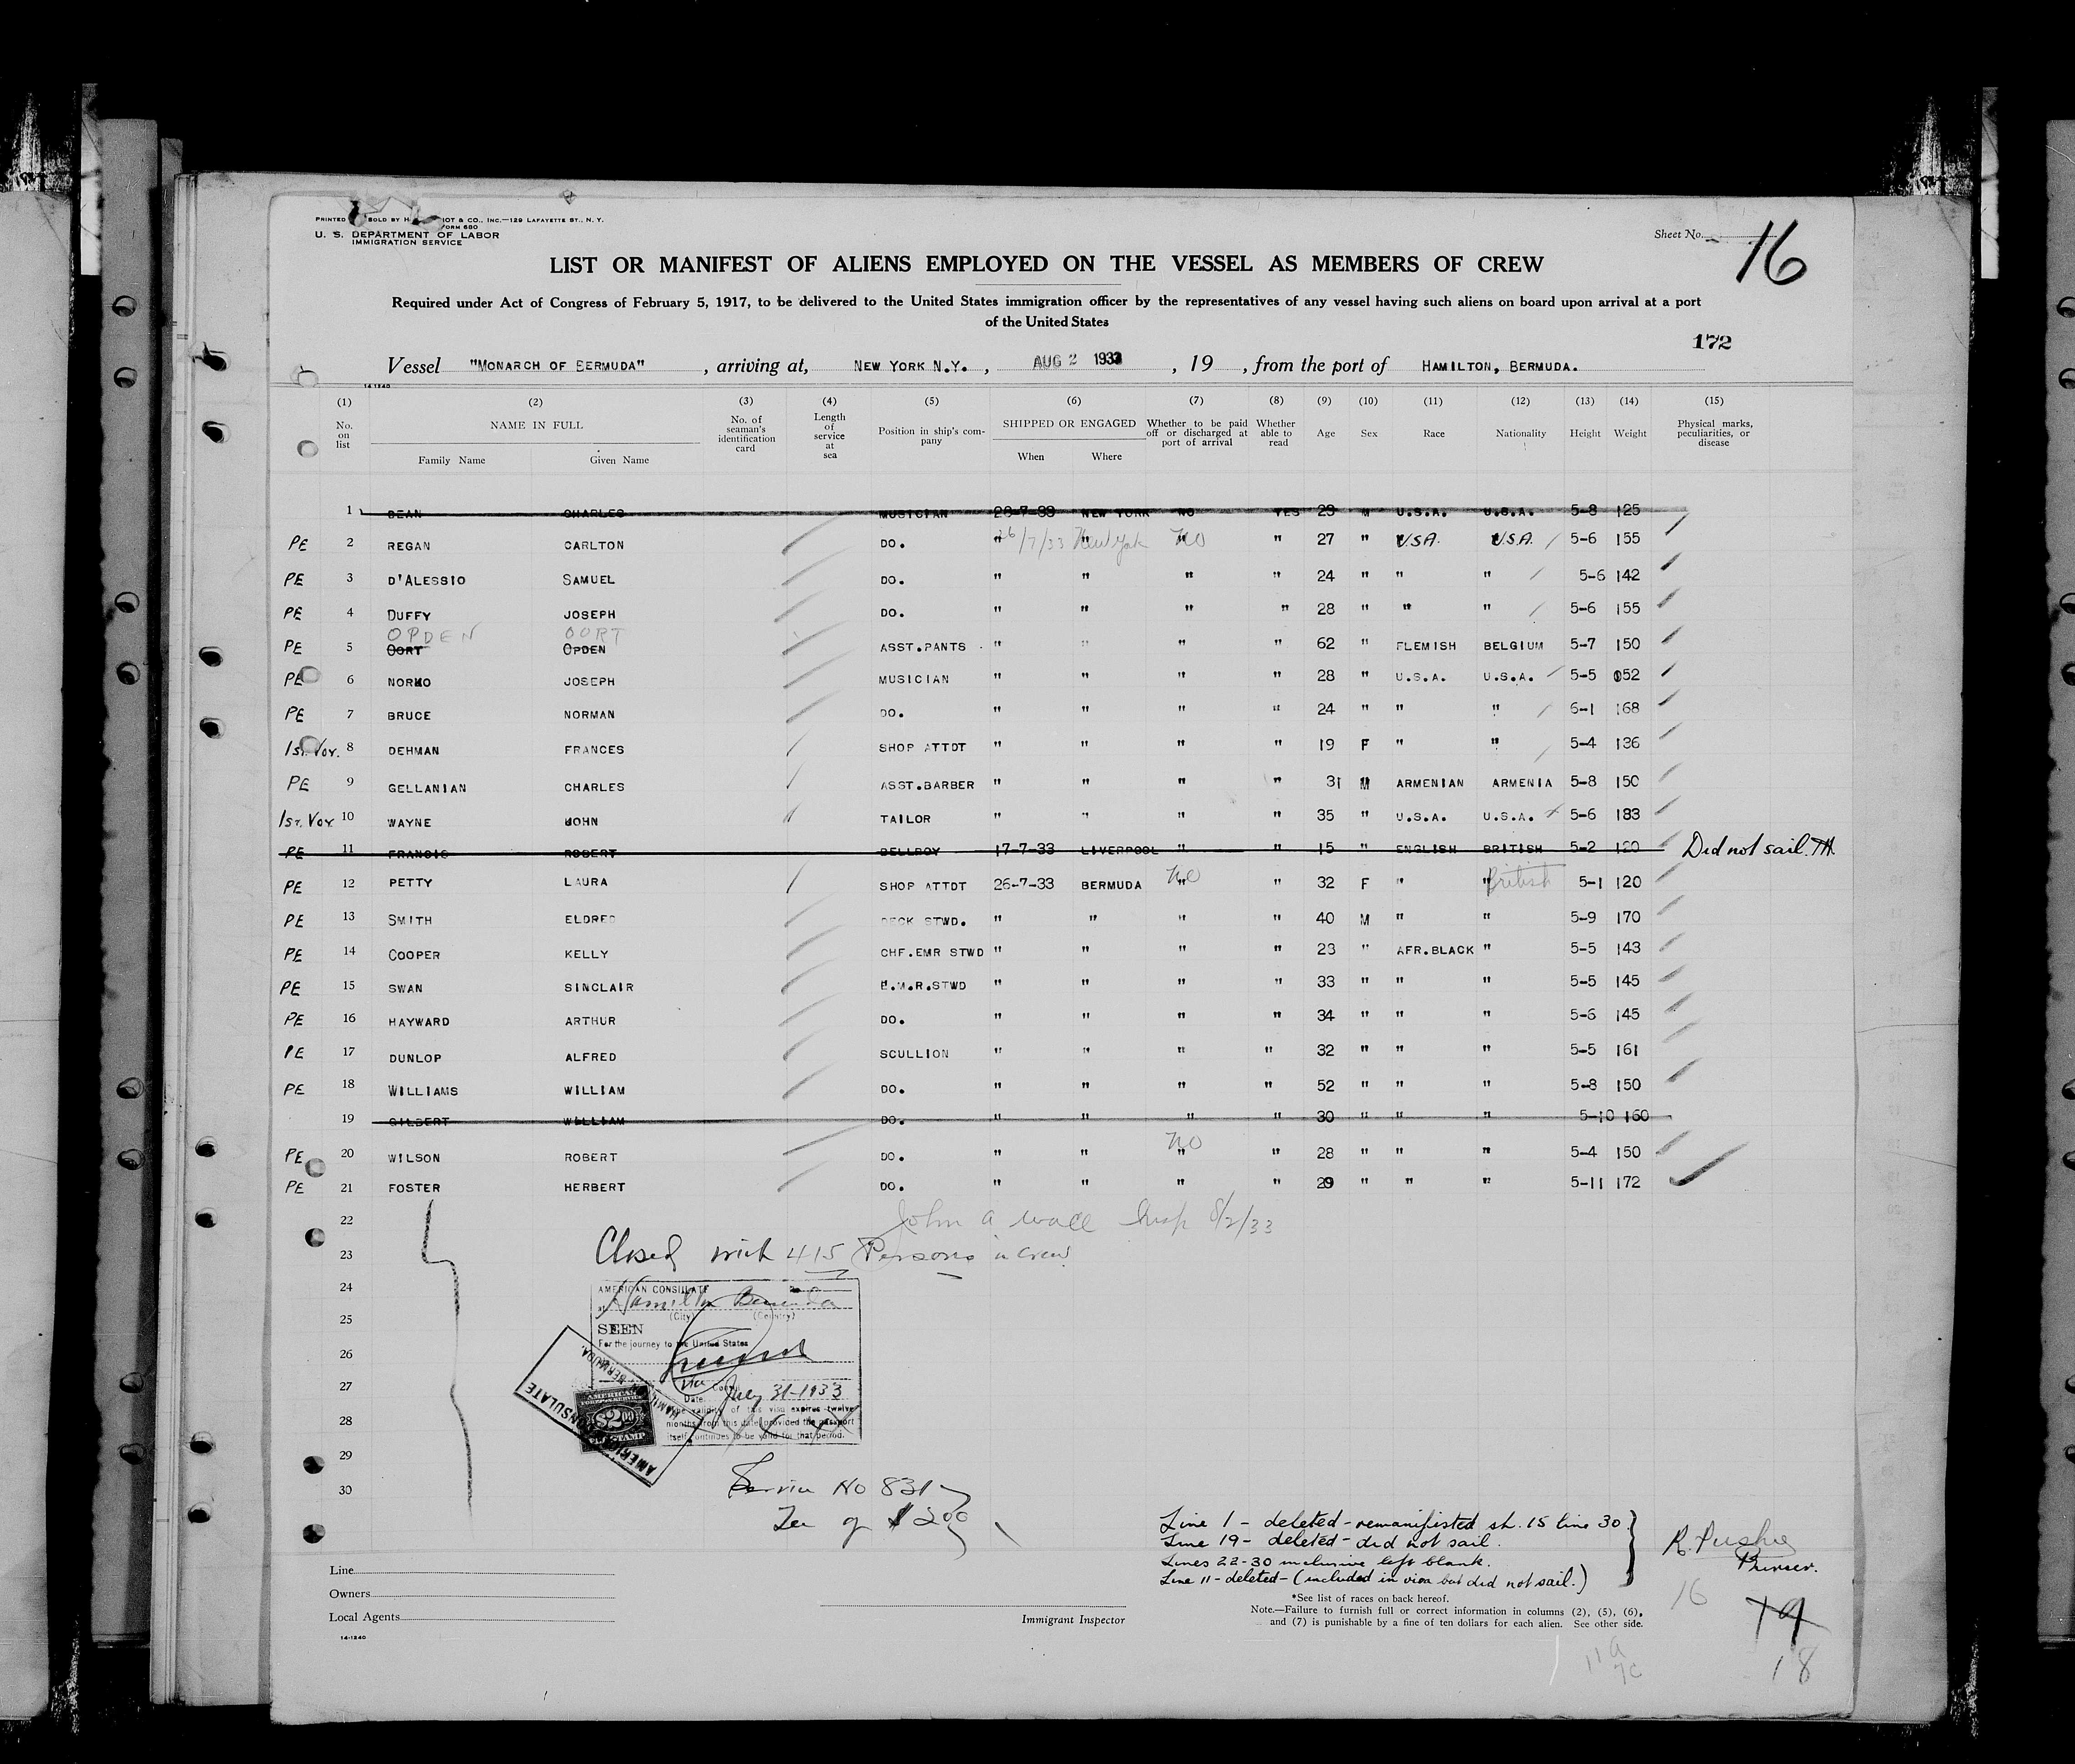 PRINTED SOLD BY H IOT & CO., INC.—129 LAFAYETTE ST., N. Y.
FORM 680
U. S. DEPARTMENT OF LABOR
IMMIGRATION SERVICE
Sheet No. 16
LIST OR MANIFEST OF ALIENS EMPLOYED ON THE VESSEL AS MEMBERS OF CREW
Required under Act of Congress of February 5, 1917, to be delivered to the United States immigration officer by the representatives of any vessel having such aliens on board upon arrival at a port
of the United States
172
Vessel "MONARCH OF BERMUDA" , arriving at, NEW YORK N.Y. , AUG 2 1933 , 19 , from the port of HAMILTON, BERMUDA.
14-1240
(1) (2) (3) (4) (5) (6) (7) (8) (9) (10) (11) (12) (13) (14) (15)
No. on list NAME IN FULL Family Name Given Name No. of seaman's identification card Length of service at sea Position in ship's company SHIPPED OR ENGAGED When Where Whether to be paid off or discharged at port of arrival Whether able to read Age Sex Race Nationality Height Weight Physical marks, peculiarities, or disease
1 DEAN CHARLES MUSICIAN 26-7-33 NEW YORK NO YES 23 M U.S.A. U.S.A. 5-8 125
PE 2 REGAN CARLTON DO. " 26/7/33 New York " NO " 27 " U.S.A. U.S.A. 5-6 155
PE 3 D'ALESSIO SAMUEL DO. " " " " 24 " " " 5-6 142
PE 4 DUFFY JOSEPH DO. " " " " 28 " " " 5-6 155
OPDEN OORT
PE 5 OORT OPDEN ASST.PANTS " " " " 62 " FLEMISH BELGIUM 5-7 150
PE 6 NORKO JOSEPH MUSICIAN " " " " 28 " U.S.A. U.S.A. 5-5 152
PE 7 BRUCE NORMAN DO. " " " " 24 " " " 6-1 168
1ST. VOY. 8 DEHMAN FRANCES SHOP ATTDT " " " " 19 F " " 5-4 136
PE 9 GELLANIAN CHARLES ASST.BARBER " " " " 31 M ARMENIAN ARMENIA 5-8 150
1ST. VOY. 10 WAYNE JOHN TAILOR " " " " 35 " U.S.A. U.S.A. 5-6 183
PE 11 FRANCIS ROBERT BELLBOY 17-7-33 LIVERPOOL " " 15 " ENGLISH BRITISH 5-2 120 Did not sail. TH.
PE 12 PETTY LAURA SHOP ATTDT 26-7-33 BERMUDA " NO " 32 F " " British 5-1 120
PE 13 SMITH ELDRED DECK STWD. " " " " 40 M " " 5-9 170
PE 14 COOPER KELLY CHF.EMR STWD " " " " 23 " AFR.BLACK " 5-5 143
PE 15 SWAN SINCLAIR E.M.R.STWD " " " " 33 " " " 5-5 145
PE 16 HAYWARD ARTHUR DO. " " " " 34 " " " 5-6 145
PE 17 DUNLOP ALFRED SCULLION " " " " 32 " " " 5-5 161
PE 18 WILLIAMS WILLIAM DO. " " " " 52 " " " 5-8 150
19 GILBERT WILLIAM DO. " " " " 30 " " " 5-10 160
PE 20 WILSON ROBERT DO. " " NO " " 28 " " " 5-4 150
PE 21 FOSTER HERBERT DO. " " " " 29 " " " 5-11 172
22 John A Wall Insp 8/2/33
23 Closed with 415 Persons in crew
24 AMERICAN CONSULATE
at Hamilton Bermuda
(City) (Country)
25 SEEN
For the journey to the United States
26
27 Date: July 31-1933
The validity of this visa expires twelve
28 months from this date provided the passport
itself continues to be valid for that period.
AMERICAN CONSULATE HAMILTON BERMUDA.
AMERICAN FOREIGN SERVICE $2.00 FEE STAMP
29
30 Service No 831
Fee of $2.00
Line 1 - deleted - remanifested sh. 15 line 30
Line 19 - deleted - did not sail.
Lines 22-30 inclusive left blank.
Line 11 - deleted - (included in visa but did not sail.)
Purser.
Line
Owners
Local Agents
Immigrant Inspector
*See list of races on back hereof.
Note.—Failure to furnish full or correct information in columns (2), (5), (6),
and (7) is punishable by a fine of ten dollars for each alien. See other side.
14-1240
16
19
18
11a
7c